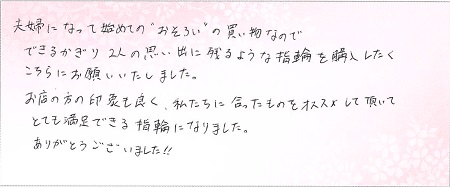 夫婦になって始めての"おそろい"の買い物なので
できるかぎり2人の思い出に残るような指輪を購入したく
こちらにお願いいたしました。
お店の方の印象も良く、私たちに合ったものをオススメして頂いて
とても満足できる指輪になりました。
ありがとうございました!!